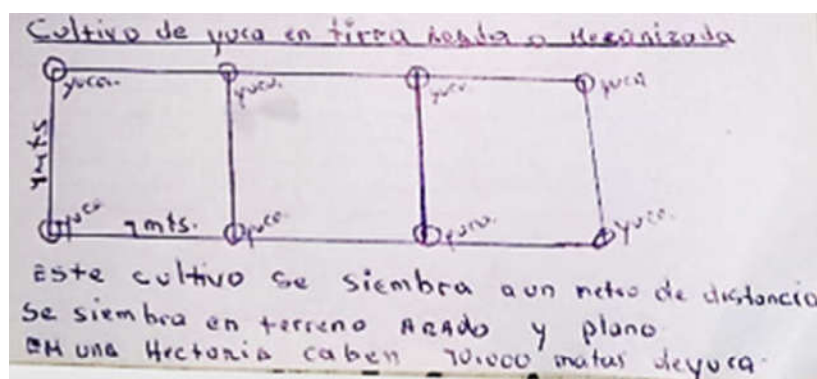 Cultivo de yuca en tirra Arada o Mecanizada
yuca. yuca. yuca. yuca
1 mts
yuca 1 mts. yuca. yuca. yuca.
Este cultivo se siembra a un metro de distancia
Se siembra en terreno ARADO y plano
EN una Hectaria caben 10.000 matas de yuca.